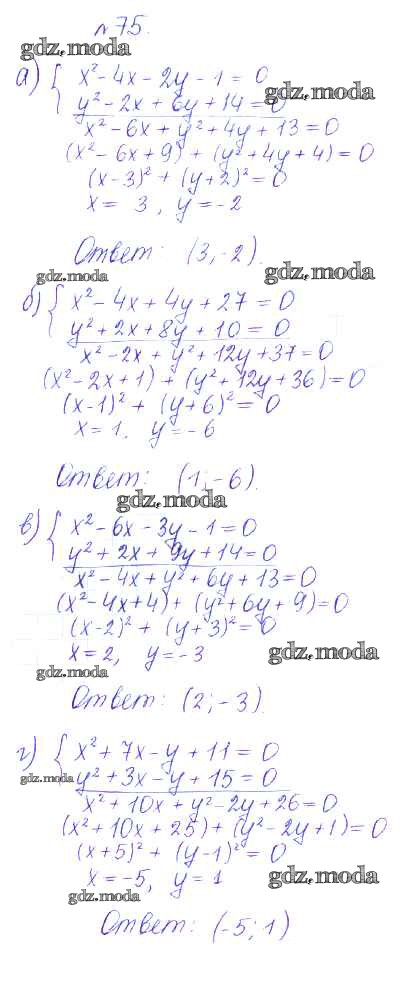 №75.
gdz.moda
а) { x² - 4x - 2y - 1 = 0
gdz.moda
y² - 2x + 6y + 14 = 0
x² - 6x + y² + 4y + 13 = 0
(x² - 6x + 9) + (y² + 4y + 4) = 0
(x-3)² + (y+2)² = 0
x = 3, y = -2
Ответ: (3, -2).
gdz.moda gdz.moda
б) { x² - 4x + 4y + 27 = 0
y² + 2x + 8y + 10 = 0
x² - 2x + y² + 12y + 37 = 0
(x² - 2x + 1) + (y² + 12y + 36) = 0
(x-1)² + (y+6)² = 0
x = 1. y = -6
Ответ: (1; -6).
gdz.moda
в) { x² - 6x - 3y - 1 = 0
y² + 2x + 9y + 14 = 0
x² - 4x + y² + 6y + 13 = 0
(x² - 4x + 4) + (y² + 6y + 9) = 0
(x-2)² + (y+3)² = 0
x = 2, y = -3
gdz.moda
gdz.moda
Ответ: (2; -3).
г) { x² + 7x - y + 11 = 0
gdz.moda
y² + 3x - y + 15 = 0
x² + 10x + y² - 2y + 26 = 0
(x² + 10x + 25) + (y² - 2y + 1) = 0
(x+5)² + (y-1)² = 0
x = -5, y = 1
gdz.moda
gdz.moda
Ответ: (-5; 1)